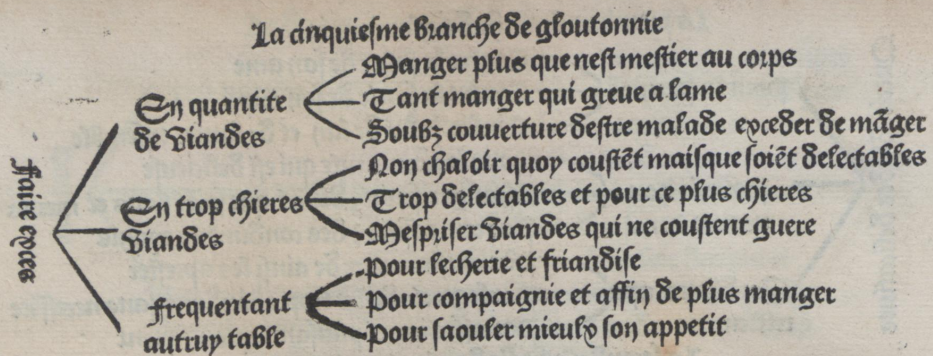 La cinquiesme branche de gloutonnie
Faire exces
En quantite
de viandes
Manger plus que nest mestier au corps
Tant manger qui greue a lame
Soubz couuerture destre malade exceder de mãger
En trop chieres
viandes
Non chaloir quoy coustẽt maisque soiẽt delectables
Trop delectables et pour ce plus chieres
Mespriser viandes qui ne coustent guere
Frequentant
autruy table
Pour lecherie et friandise
Pour compaignie et affin de plus manger
Pour saouler mieulx son appetit